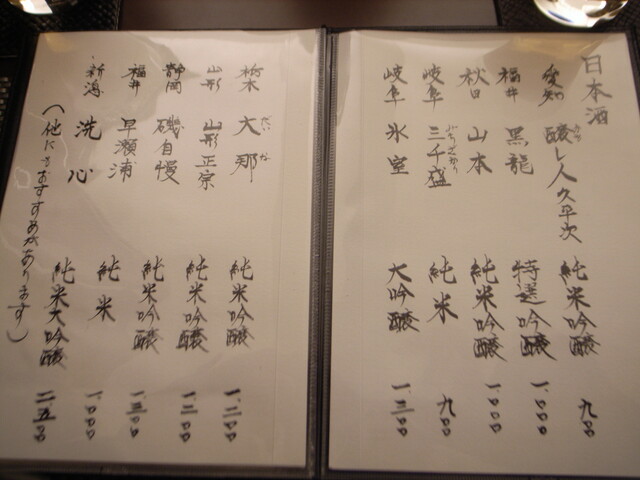 日本酒
愛知 醸し人久平次 純米吟醸 九〇〇
福井 黒龍 特選吟醸 一、〇〇〇
秋田 山本 純米吟醸 一、〇〇〇
岐阜 三千盛 純米 九〇〇
岐阜 氷室 大吟醸 一、三〇〇
栃木 大那 だいな 純米吟醸 一、二〇〇
山形 山形正宗 純米吟醸 一、二〇〇
静岡 磯自慢 純米吟醸 一、三〇〇
福井 早瀬浦 純米 一、〇〇〇
新潟 洗心 純米大吟醸 二、五〇〇
(他にもおすすめがあります)